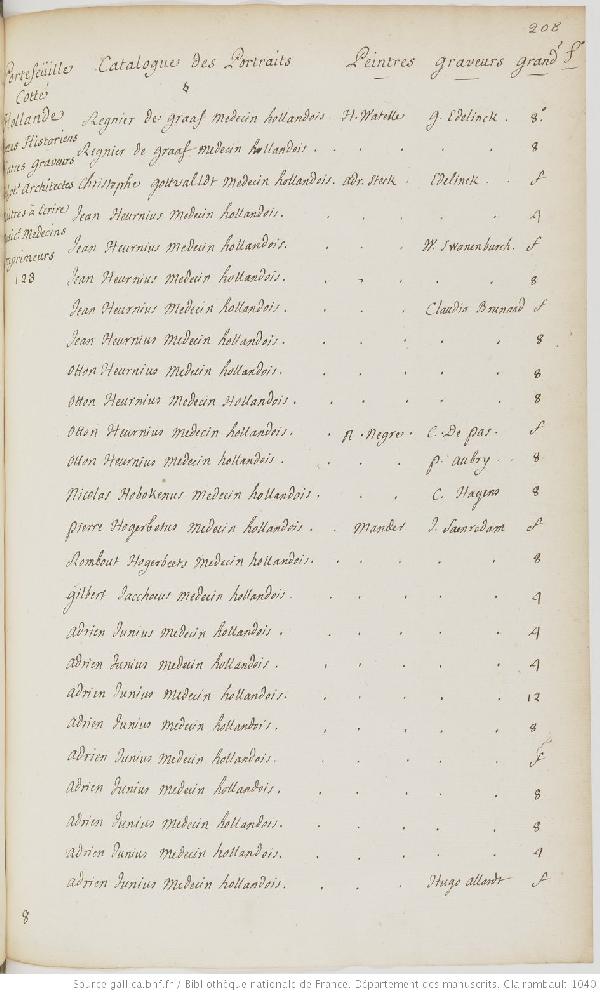 208
Catalogue des Portraits Peintres graveurs grand.r f.r
Portefeüille
Cotté
Hollande
Historiens
graveurs
Architectes
à Ecrire
Medecins
Imprimeurs
123
Regnier de graaf medecin hollandois. H. Watelle g. Edelinck. 8.º
Regnier de graaf medecin hollandois. 8
Christophe gottvalldt medecin hollandois. adr. Steck. Edelinck. f
Jean Heurnius medecin hollandois. 4
Jean Heurnius medecin hollandois. W. Swanenburch. f
Jean Heurnius medecin hollandois. 8
Jean Heurnius medecin hollandois. Claudia Brunand f
Jean Heurnius medecin hollandois. 8
otton Heurnius medecin hollandois. 8
otton Heurnius medecin Hollandois. 8
otton Heurnius medecin hollandois. n. Negre. C. De pas. f
otton Heurnius medecin hollandois. p. aubry. 8
Nicolas Hobokenus medecin hollandois. C. Hagens 8
pierre Hogerbetus medecin hollandois. Mander J. Saenredam f
Rombout Hogerbeets medecin hollandois. 8
gilbert Jacchoeus medecin hollandois. 4
adrien Junius medecin hollandois. 4
adrien Junius medecin hollandois. 4
adrien Junius medecin hollandois. 12
adrien Junius medecin hollandois. 8
adrien Junius medecin hollandois. f
adrien Junius medecin hollandois. 8
adrien Junius medecin hollandois. 8
adrien Junius medecin hollandois. 4
adrien Junius medecin hollandois. Hugo allardt f
8
Source gallica.bnf.fr / Bibliothèque nationale de France. Département des manuscrits. Clairambault 1040